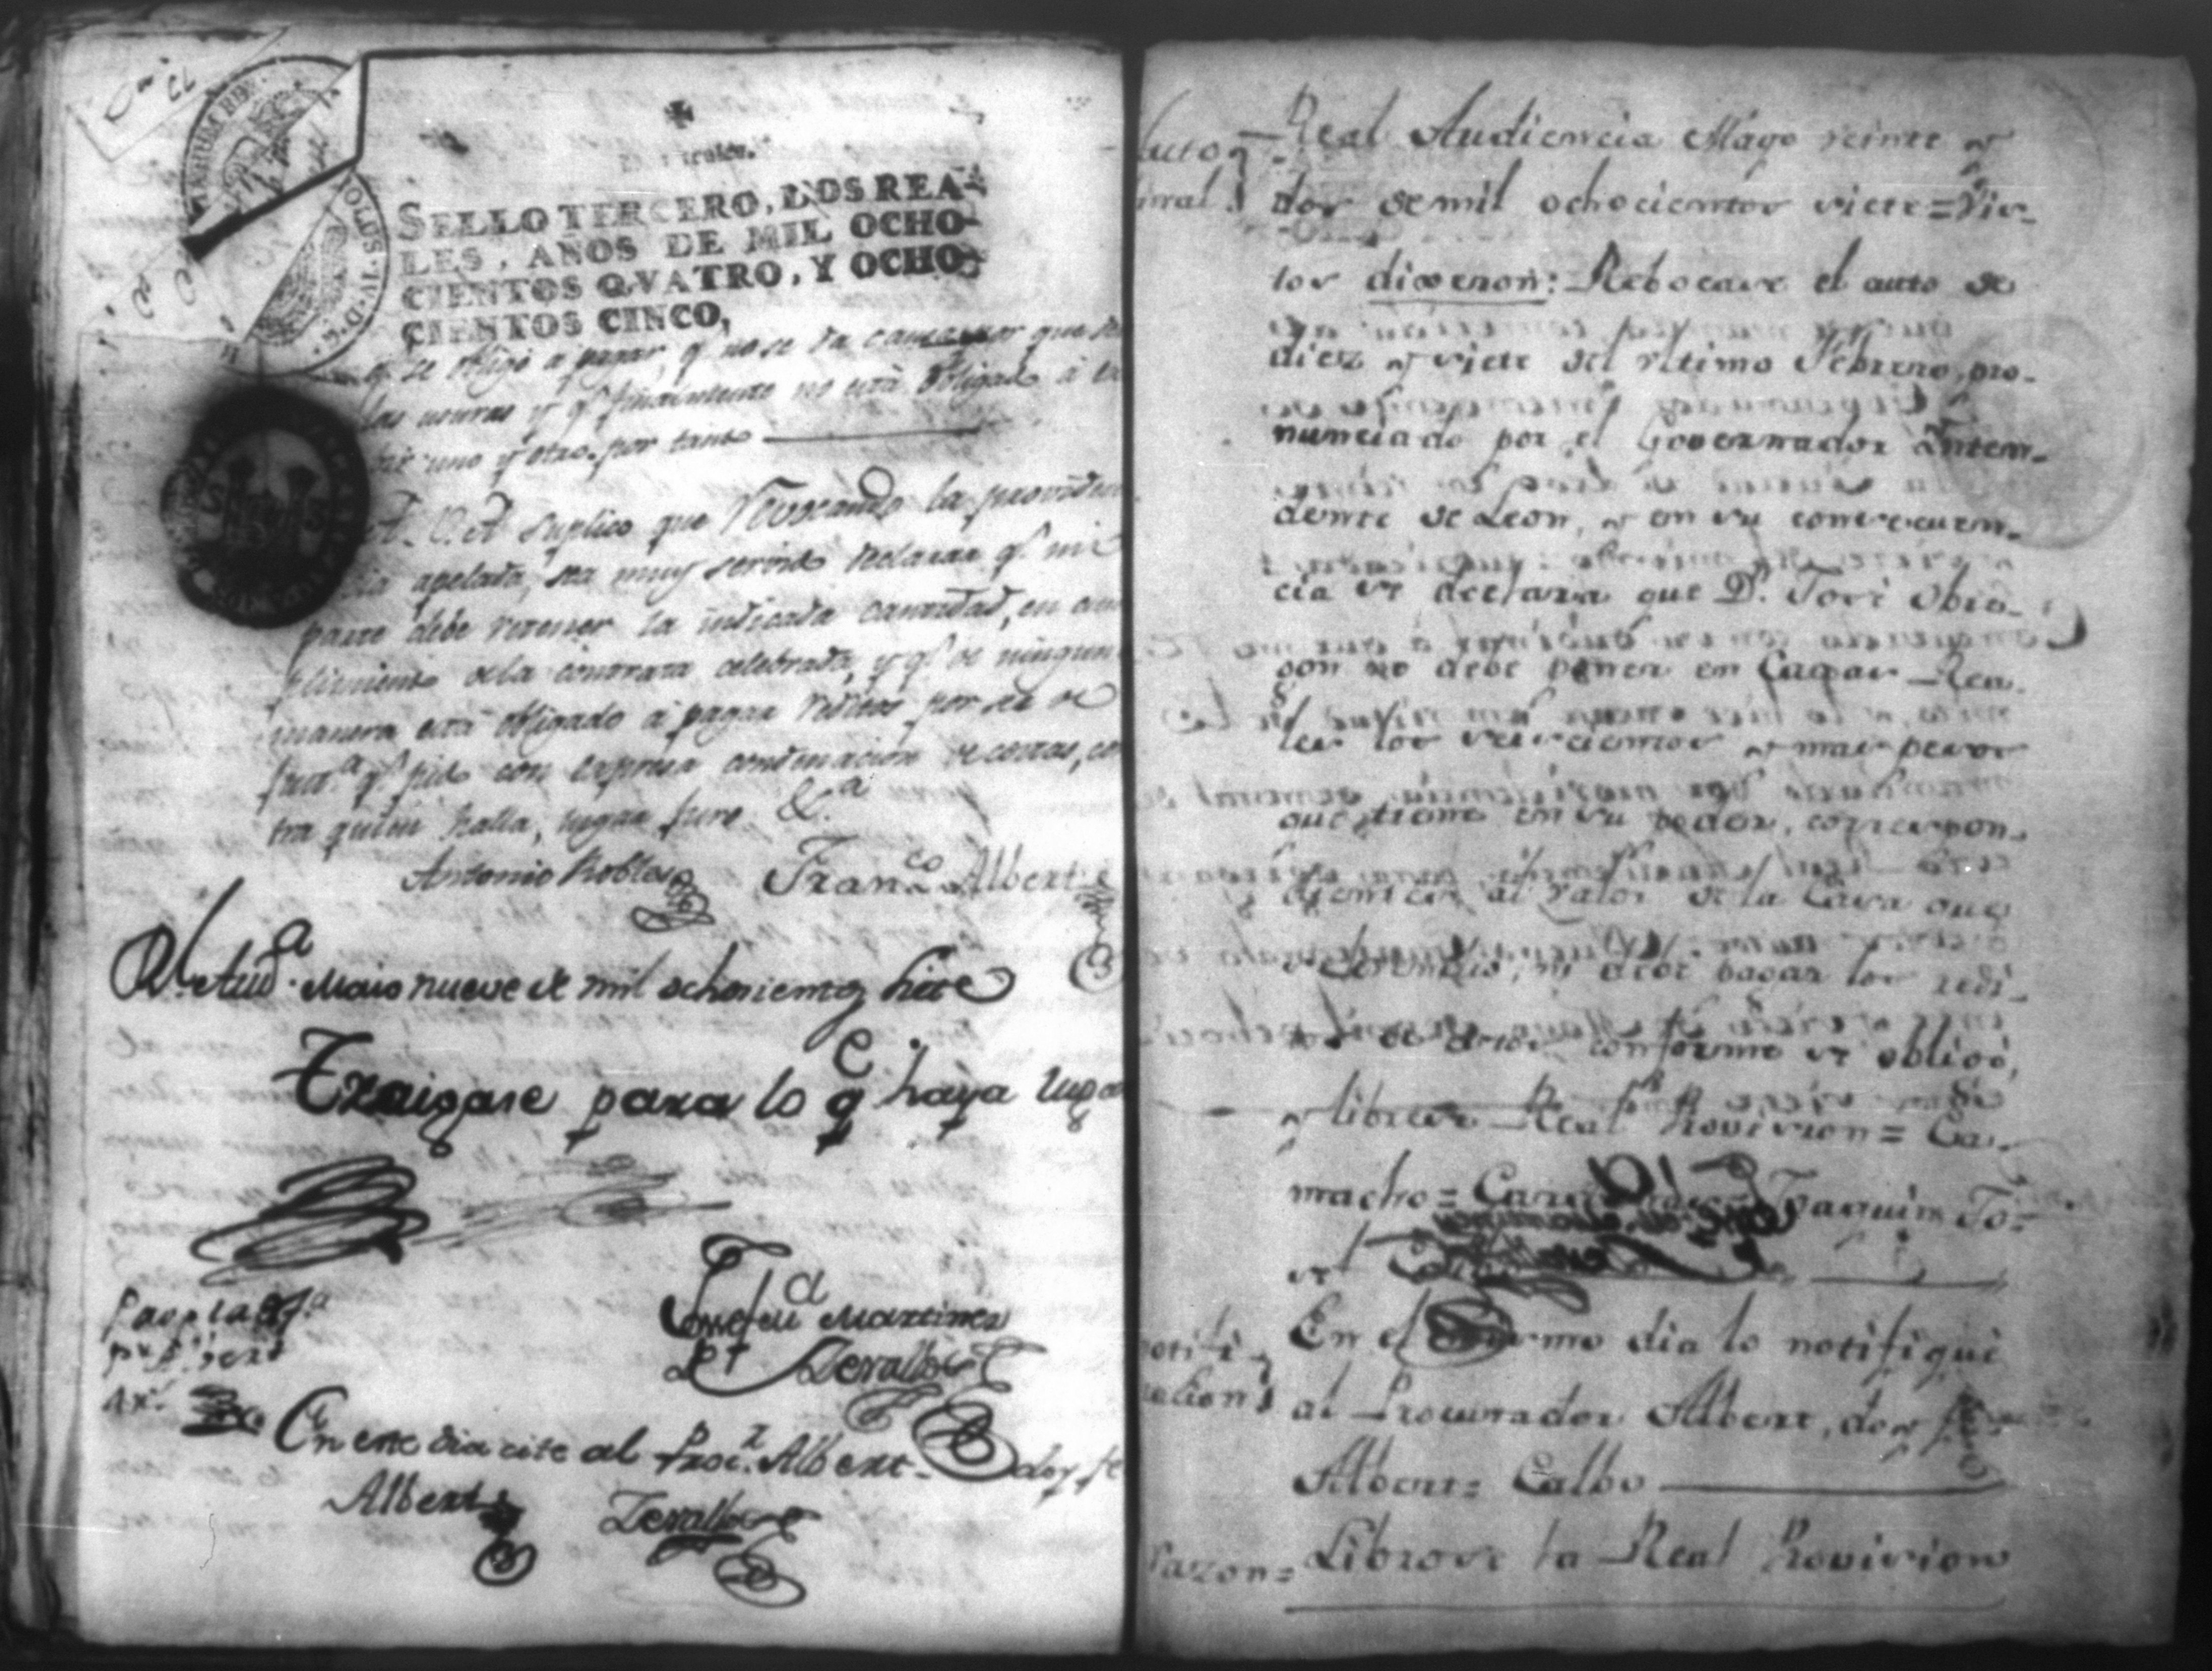 SELLO TERCERO, DOS REA-
LES, AÑOS DE MIL OCHO-
CIENTOS QVATRO, Y OCHO-
CIENTOS CINCO,
q.e se obligó a pagar, q.e no se da
las usuras y q.e finalmente no está obligado á
uno y otro. por tanto
A. V. A. Suplico que Revocando la providen
apelada, sea muy servido declarar q.e mi
parte debe retener la indicada cantidad, en cum
plimiento dela contrata celebrada, y q.e de ningun
manera está obligado a pagar reditos por ser de
just.a q.e pido con expresa condenacion de costas, con
tra quien halla, lugar juro &.a
Antonio Robles Fran.co Albert
R.l Aud.a Maio nueve de mil ochocientos siete
Traigase para lo q.e haya lugar
Martinez
Zevallos
En este dia cite al Proc.r Albert doy fe
Albert Zevallos
Auto Real Audiencia Mayo veinte y
dos de mil ochocientos siete = Vis-
tos dixeron: Rebocase el auto de
diez y siete del ultimo Febrero, pro-
nunciado por el Governador Inten-
dente de Leon, y en su consecuen-
cia se declara que D.n José Obre-
gon no debe poner en Cagas Rea-
les los seiscientos y mas pesos
que tiene en su poder, correspon-
dientes al valor de la Casa que
ni debe pagar los redi-
tos de ellos conforme se obligó,
y librese Real Provision = Ca-
macho = Joaquin
En el mismo dia lo notifiqué
al Procurador Albert, doy fe
Albert = Calbo
Razon = Librose la Real Provision